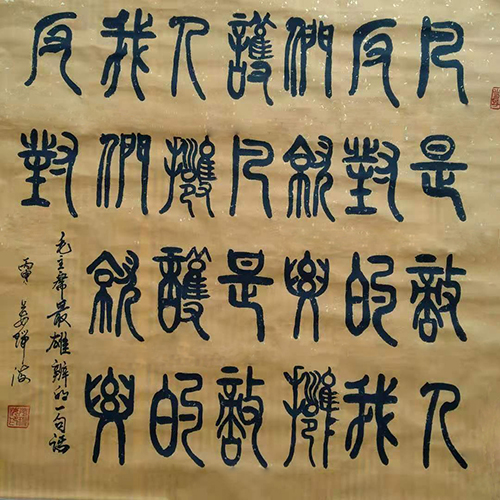 凡是敵人
反對的我
們就要擁
護凡是敵
人擁護的
我們就要
反對
毛主席最雄辨的一句話